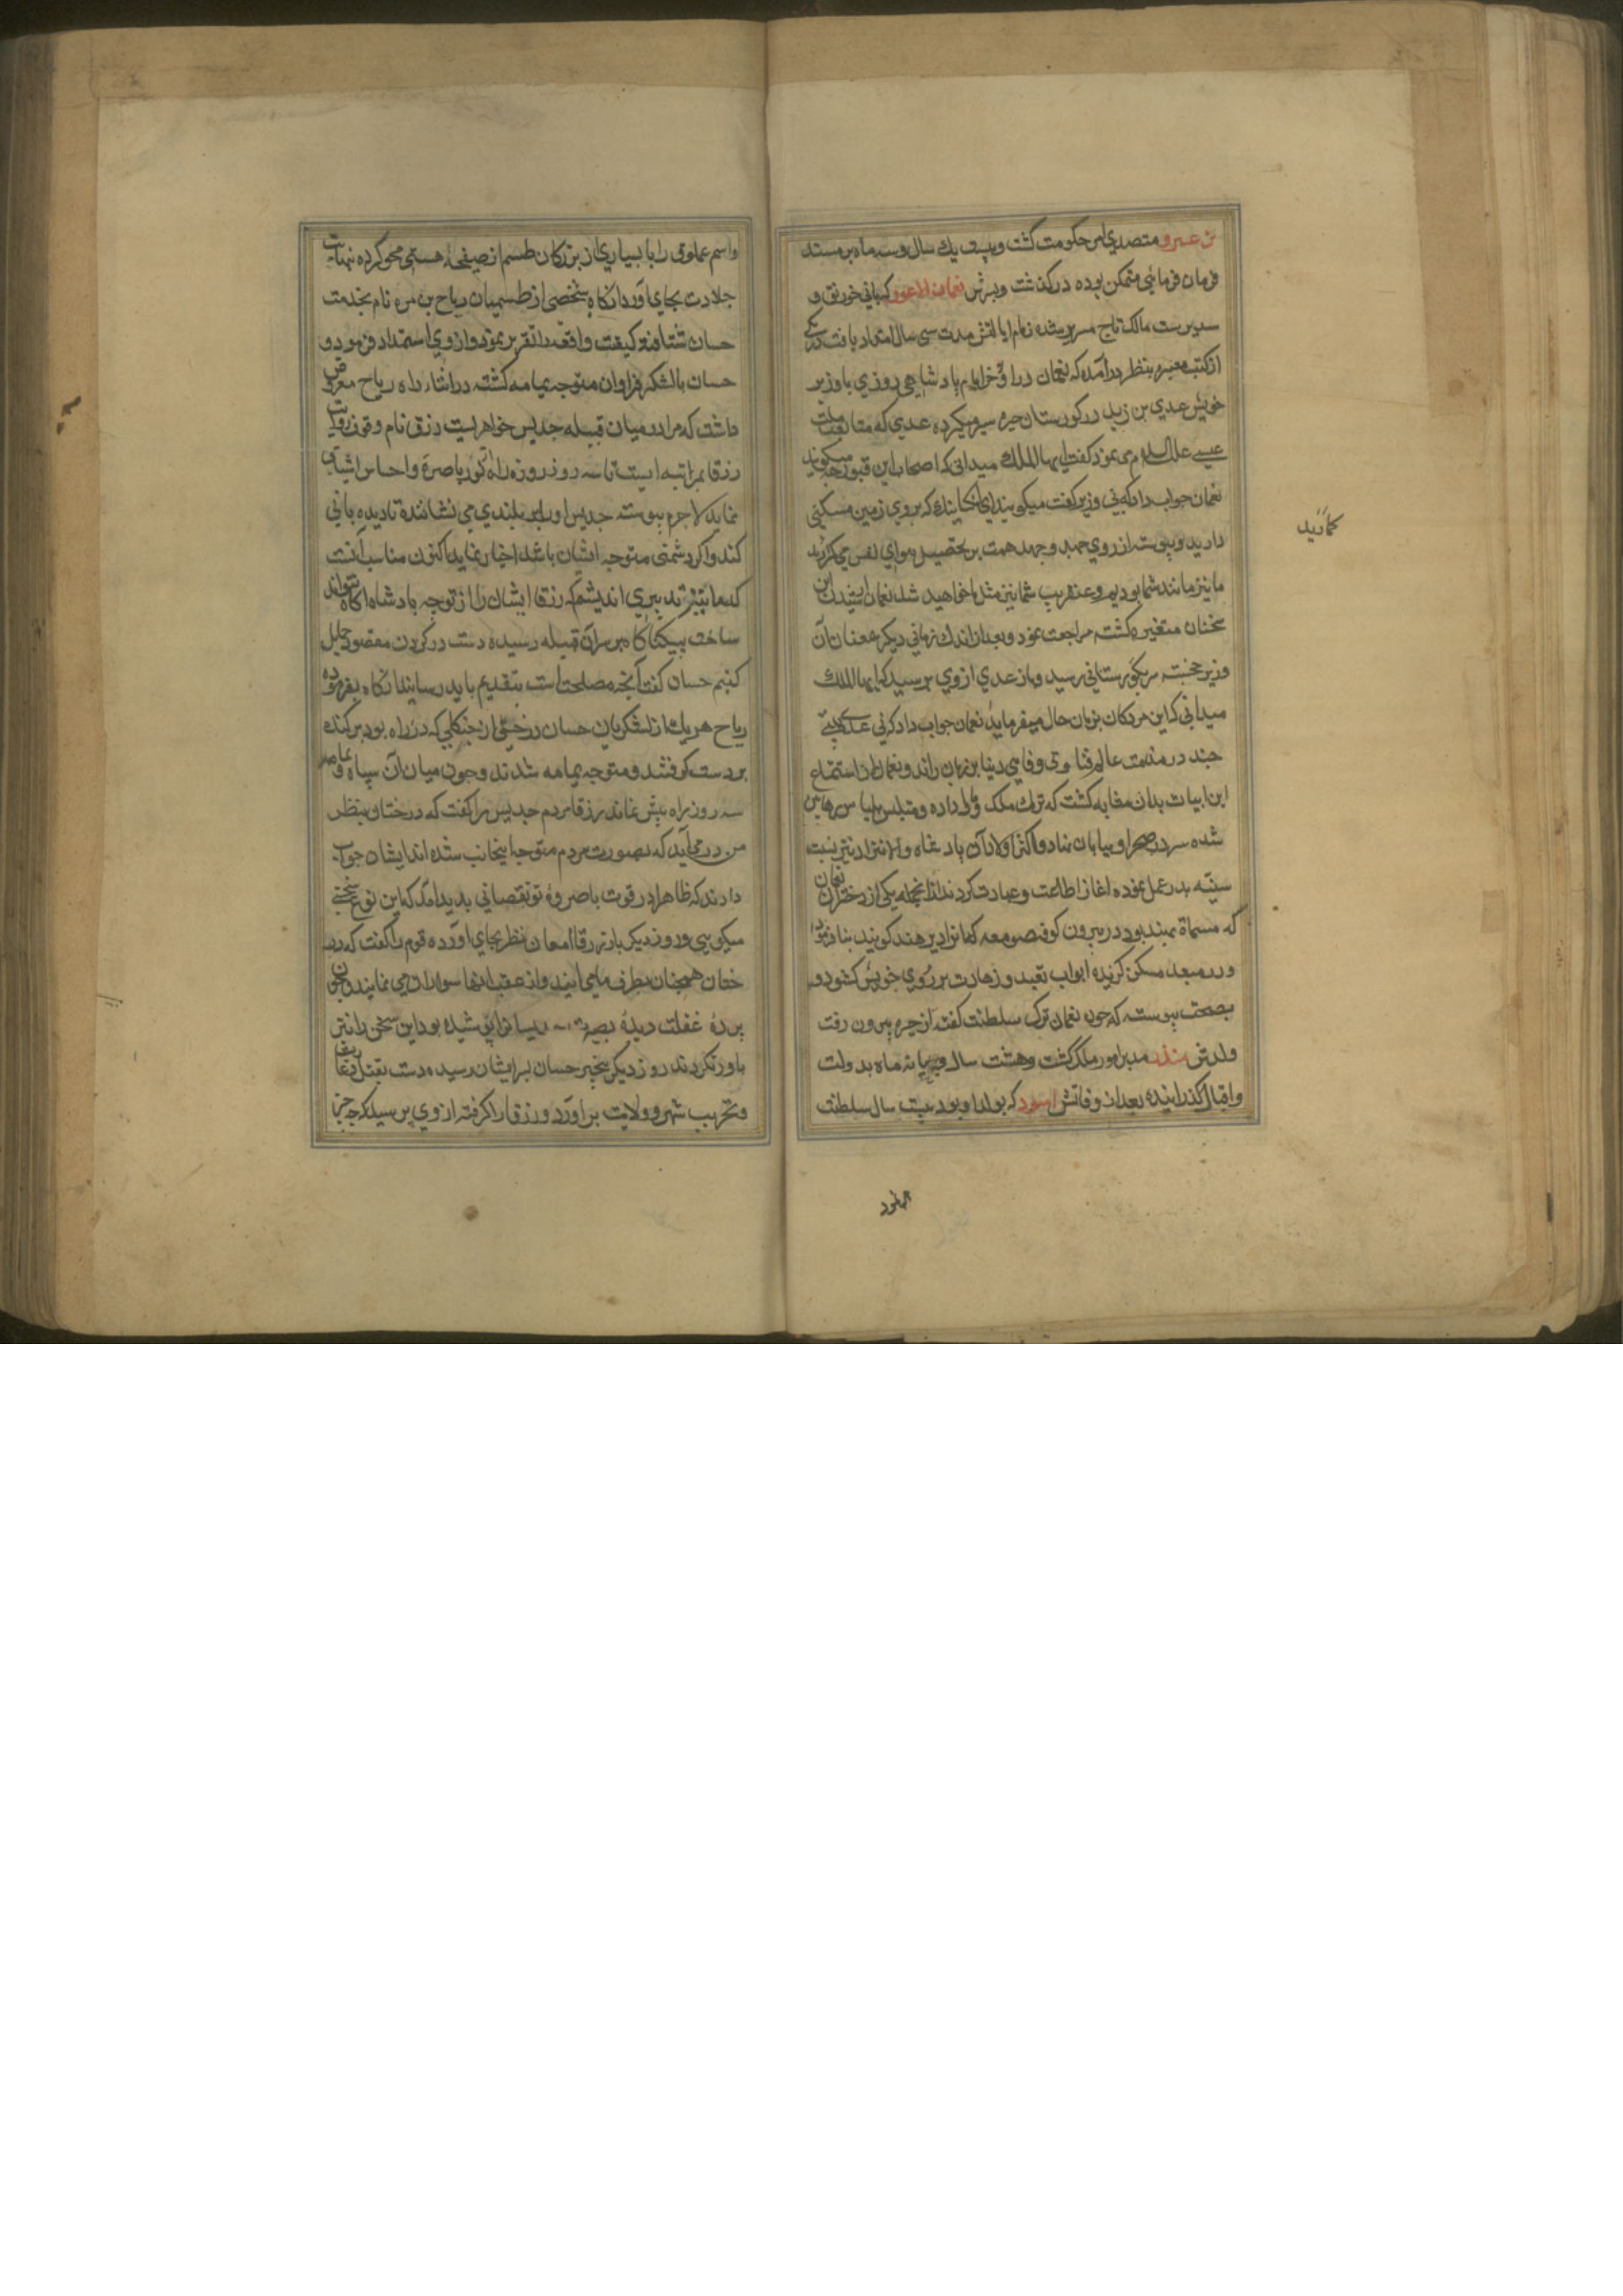 بن عمرو متصدی امر حکومت گشت و بیست و یك سال و سه ماه بر مسند
فرمان فرمایی متمکن بوده درگذشت و پسرش نعمان الاعور که بانی خورنق و
سدیرست مالك تاج و سریر شده زمام ایالتش مدت سی سال امتداد یافت در
از کتب معتبره بنظر درآمده که نعمان در اواخر ایام پادشاهی روزی با وزیر
خویش عدی بن زید در کورستان حیره سیر میکرد عدی که متابعت ملت
عیسی علیه السلام می نمود گفت ایها الملك میدانی که اصحاب این قبور چه میکویند
نعمان جواب داد که نی وزیر گفت میکویند ای انجماعت که بر روی زمین مسکنی
دارید و پیوسته از روی جد و جهد همت بر تحصیل هوای نفس می کمارید
ما نیز مانند شما بودیم و عنقریب شما نیز مثل ما خواهید شد نعمان از شنیدن این
سخنان متغیر گشته مراجعت نمود و بعد از اندك زمانی دیگر همعنان آن
وزیر خجسته سیر بگورستانی رسید و باز عدی از وی پرسید که ایها الملك
میدانی که این مردگان بزبان حال چه میفرمایند نعمان جواب داد که نی عدی بیتی
چند در مذمت عالم فنا و بی وفایی دنیا بر زبان راند و نعمان از استماع
این ابیات بدان مثابه گشت که ترك ملك و مال داده و متلبس بلباس رهابین
شده سر در صحرا و بیابان نهاد و اکثر اولاد آن پادشاه والانژاد نیز بنت
سنیه پدر عمل نموده اغاز اطاعت و عبادت کردند از انجمله یکی از دختران نعمان
که مسماة بهند بود در بیرون کوفه صومعه که انرا دیر هند کویند بنا فرمود
و در معبد مسکن گزیده ابواب تعبد و زهادت بر روی خویش کشود و
بصحت پیوسته که چون نعمان ترك سلطنت گفته از حیره بیرون رفت
ولدش منذر مدبر امور ملك گشت و هشت سال و نه ماه بدولت
و اقبال گذرانیده بعد از وفاتش اسود که بولد او بود بیست سال سلطنت
کمارید
نمود
واسم عملوق را با بسیاری از بزرگان طسم از صفحهٔ هستی محو کرده نهایت
جلادت بجای آورد انگاه شخصی از طسمیان ریاح بن مره نام بخدمت
حسان شتافته کیفیت واقعه را تقریر نمود و از وی استمداد فرمود و
حسان با لشکر فراوان متوجه یمامه گشته در اثناء راه ریاح معروض
داشت که مرا در میان قبیله جدیس خواهریست زرقا نام و قوت رؤیت
زرقا بمرتبه ایست تا سه روزه راه نور باصره و احساس اشیا می
نماید لاجرم پیوسته جدیس او را بر بلندی می نشانند تا دیده بانی
کند و اگر دشمنی متوجه ایشان باشد اخبار نماید اکنون مناسب آنست
که ما پیشتر تدبیری اندیشیم که زرقا ایشان را از توجه پادشاه آگاه نتواند
ساخت بیکناگاه بر سر آن قبیله رسیده دست در گردن مقصود حمایل
کنیم حسان گفت آنچه مصلحت است بتقدیم باید رسانید انگاه بفرموده
ریاح هر یك از لشکریان حسان درختی از جنگلی که در راه بود برکنده
بر دست گرفتند و متوجه یمامه شدند و چون میان آن سپاه و یمامه
سه روزه راه بیش نماند زرقا مردم جدیس را گفت که درختان بنظر
من در می آید که بصورت مردم متوجه اینجانب شده اند ایشان جواب
دادند که ظاهرا در قوت باصرهٔ تو نقصانی پدید آمد که این نوع سخنی
میکویی و روز دیگر باز زرقا امعان نظر بجای آورده قوم را گفت که در
ختان همچنان بطرف ما می آیند و از عقب انها سواران می نمایند چون
پردهٔ غفلت دیدهٔ بصیرت جدیسیانرا پوشیده بود این سخن را نیز
باور نکردند روز دیگر بیخبر حسان بر ایشان رسیده دست بقتل و غارت
و تخریب شهر و ولایت برآورد و زرقا را گرفته از وی پرسید که چه چیز